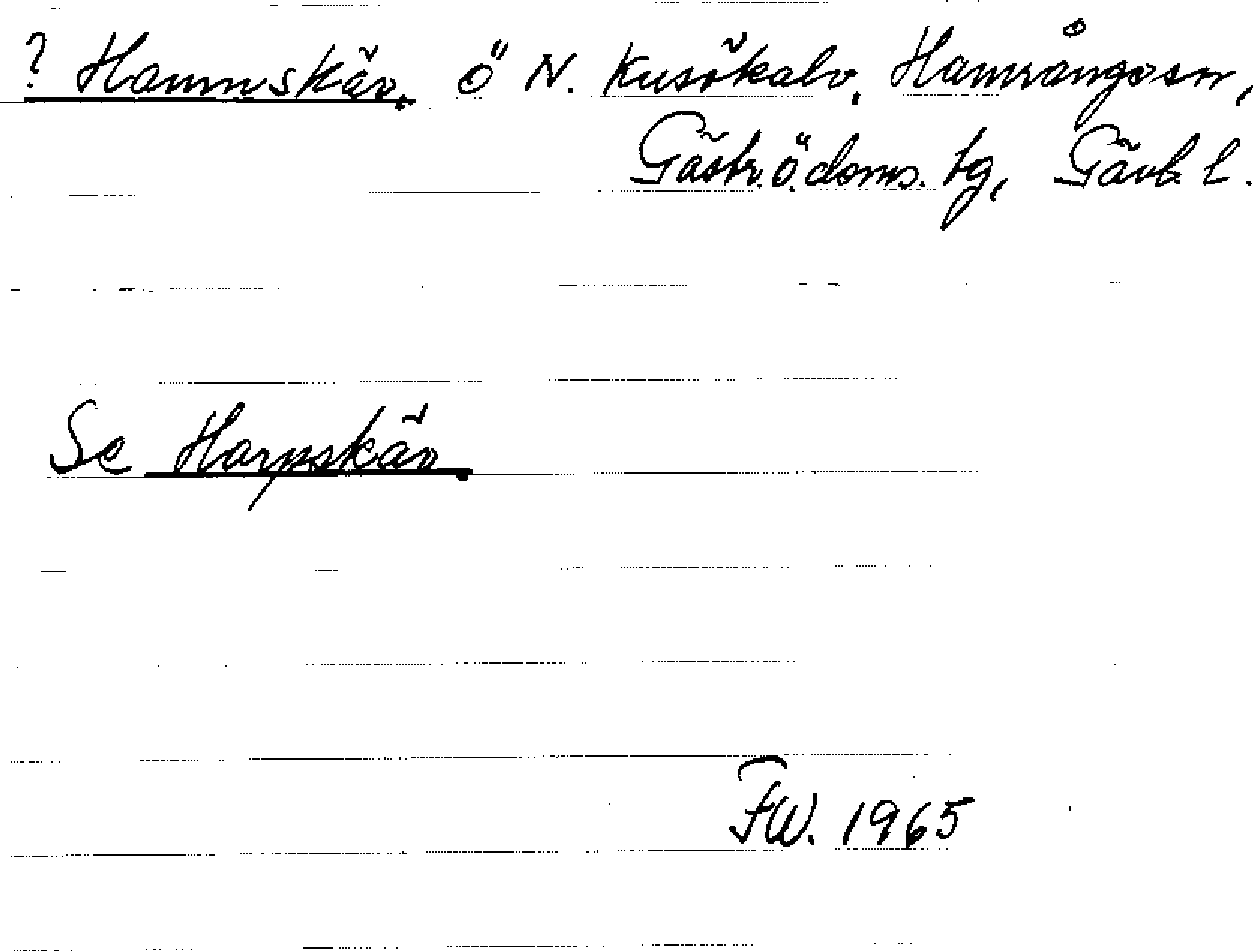 ? Hamnskär, ö N. Kusökalv, Hamrångesn,
Gästr. ö. doms. tg, Gävl. l.
Se Harpskär.
FW. 1965